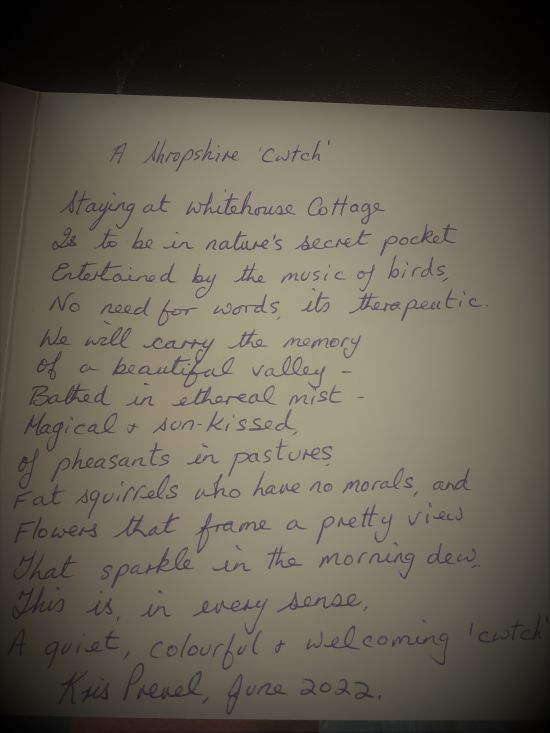 A Shropshire 'Cwtch'
Staying at Whitehouse Cottage
Is to be in nature's secret pocket
Entertained by the music of birds,
No need for words, its therapeutic.
We will carry the memory
of a beautiful valley -
Bathed in ethereal mist -
Magical & sun-kissed,
of pheasants in pastures
Fat squirrels who have no morals, and
Flowers that frame a pretty view
That sparkle in the morning dew.
This is, in every sense,
A quiet, colourful & welcoming 'cwtch'
Kris Prevel, June 2022.